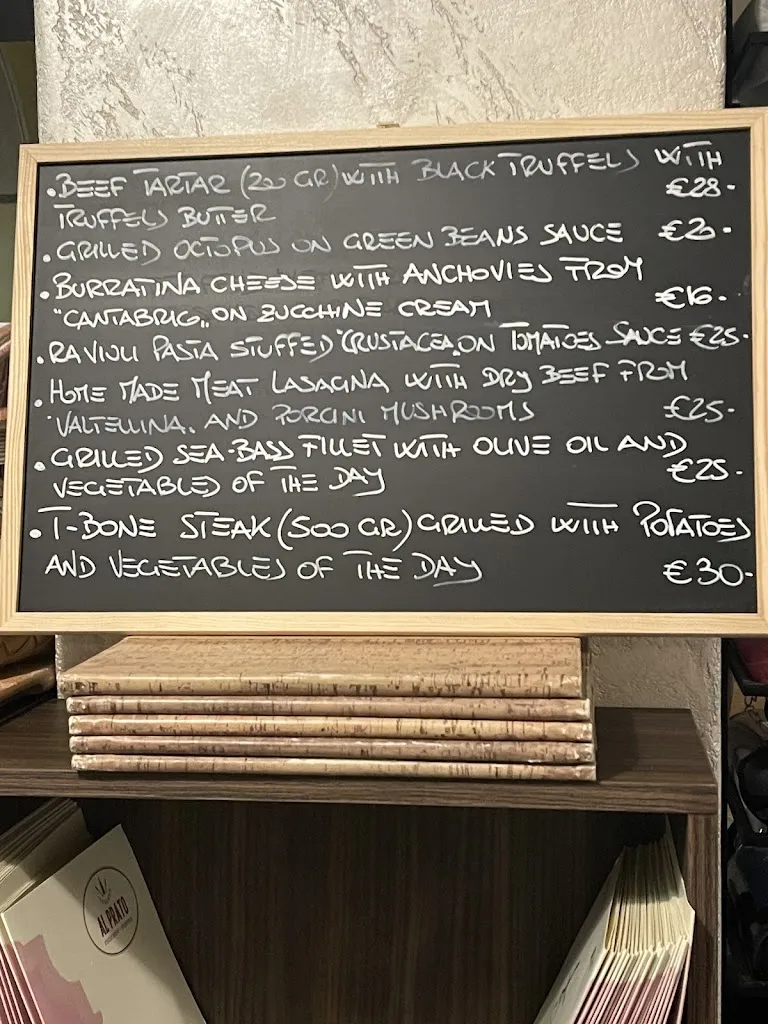 •BEEF TARTAR (200 GR) WITH BLACK TRUFFELS WITH
TRUFFELS BUTTER €28-
•GRILLED OCTOPUS ON GREEN BEANS SAUCE €20-
•BURRATINA CHEESE WITH ANCHOVIES FROM
"CANTABRIG" ON ZUCCHINE CREAM €16-
•RAVIOLI PASTA STUFFED "CRUSTACEA" ON TOMATOES SAUCE €25-
•HOME MADE MEAT LASAGNA WITH DRY BEEF FROM
"VALTELLINA" AND PORCINI MUSHROOMS €25-
•GRILLED SEA-BASS FILLET WITH OLIVE OIL AND
VEGETABLES OF THE DAY €25-
•T-BONE STEAK (500 GR) GRILLED WITH POTATOES
AND VEGETABLES OF THE DAY €30-
AL PRATO